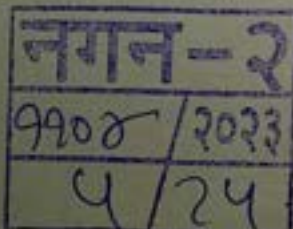 नगन-२
११०४/२०२३
५/२५